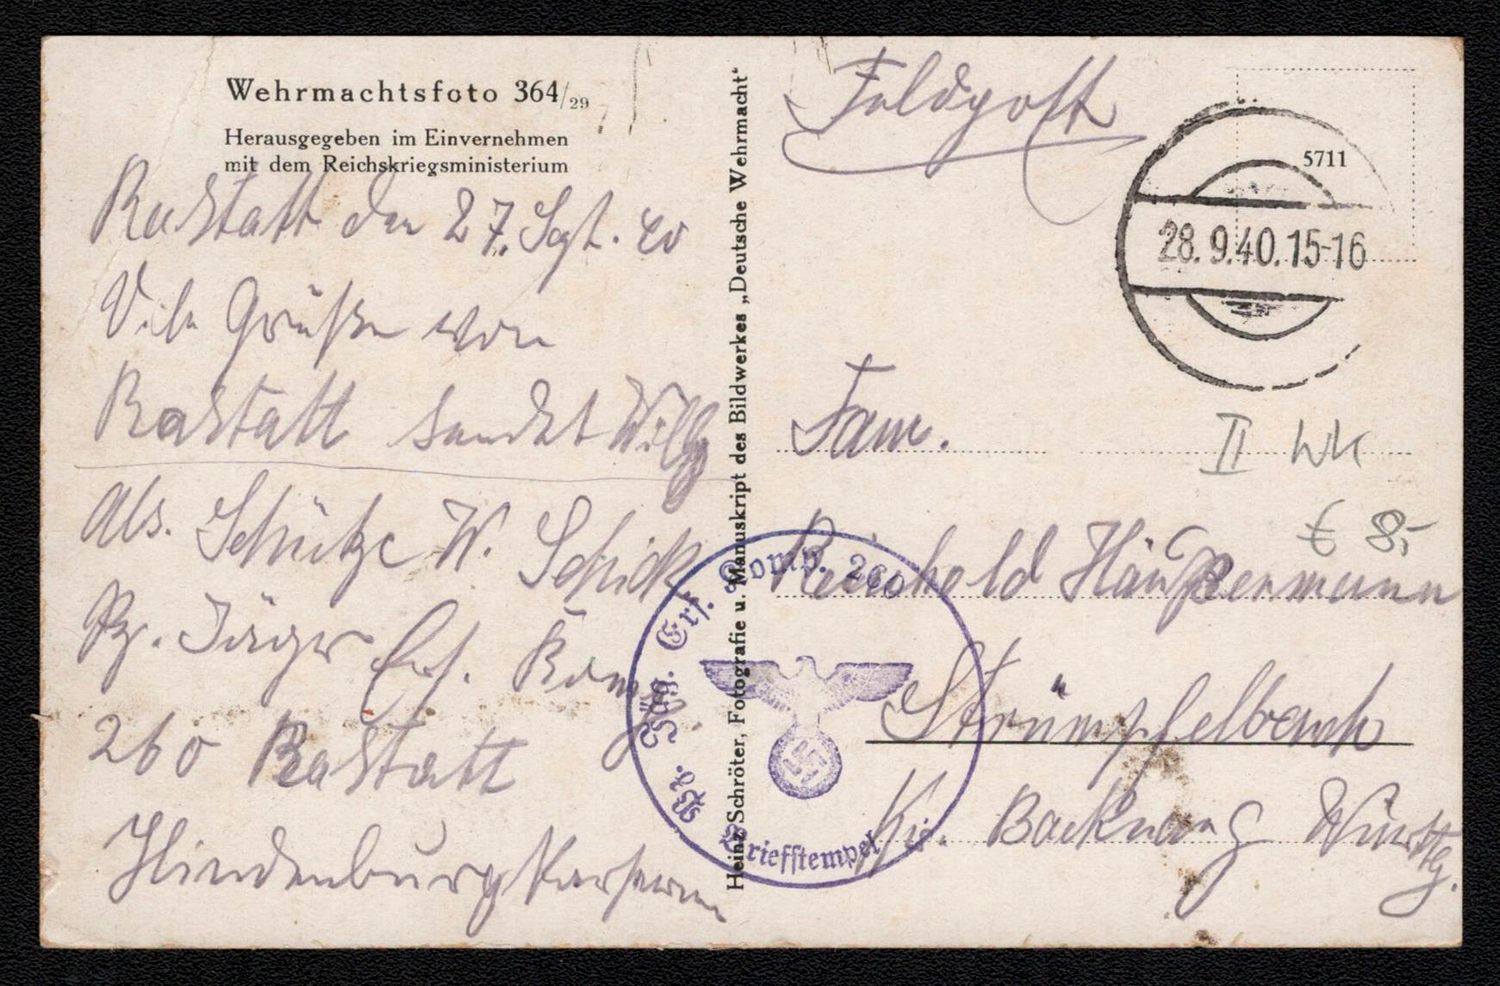 Wehrmachtsfoto 364/29
Herausgegeben im Einvernehmen
mit dem Reichskriegsministerium
Rastatt den 27. Sept. 40
Viele Grüße von
Rastatt sendet Willy
Als. Schütze W. Schick
Pz. Jäger Ers. Komp.
260 Rastatt
Hindenburgkaserne
Heinz Schröter, Fotografie u. Manuskript des Bildwerkes „Deutsche Wehrmacht“
Feldpost
5711
28.9.40.15-16
Fam.
II WK
Reinhold Häußermann
€ 8,-
Strümpfelbach
Kr. Backnang Württg.
Pz. Jäg. Ers. Komp. 260
Briefstempel